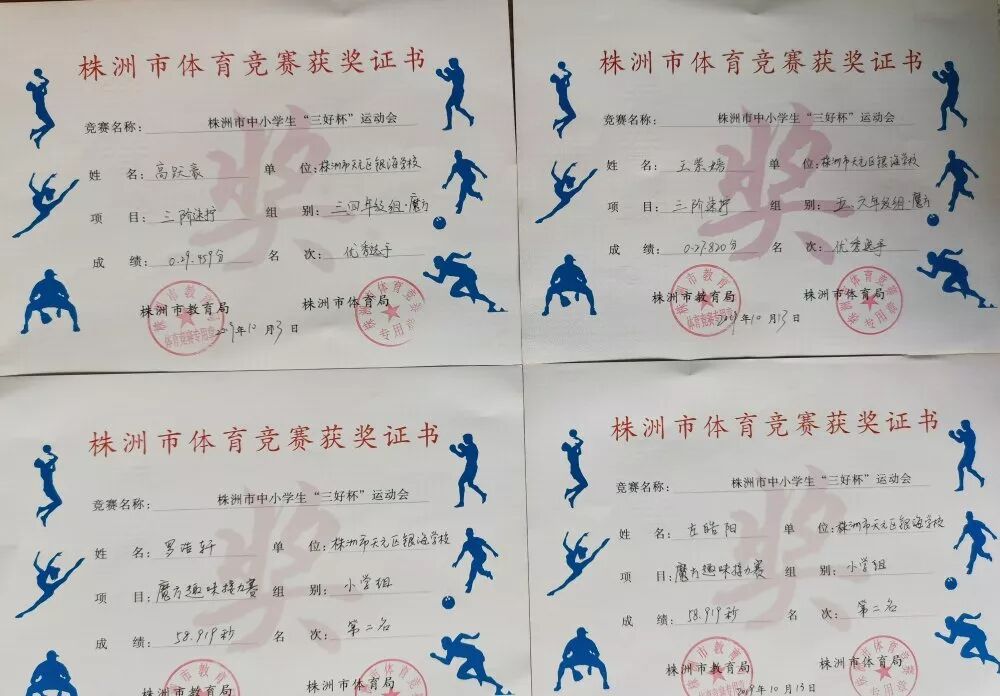 株洲市体育竞赛获奖证书
竞赛名称: 株洲市中小学生“三好杯”运动会
姓 名: 高跃豪 单 位: 株洲市天元区银海学校
项 目: 三阶速拧 组 别: 三、四年级组·魔方
成 绩: 0:29.459分 名 次: 优秀选手
株洲市教育局 株洲市体育局
2019年10月13日
体育竞赛专用章
专用章
株洲市体育竞赛获奖证书
竞赛名称: 株洲市中小学生“三好杯”运动会
姓 名: 王荣 单 位: 株洲市天元区银海学校
项 目: 三阶速拧 组 别: 五、六年级组·魔方
成 绩: 0:27.820分 名 次: 优秀选手
株洲市教育局 株洲市体育局
2019年10月13日
体育竞赛专用章
专用章
株洲市体育竞赛获奖证书
竞赛名称: 株洲市中小学生“三好杯”运动会
姓 名: 罗浩轩 单 位: 株洲市天元区银海学校
项 目: 魔方趣味接力赛 组 别: 小学组
成 绩: 58.919秒 名 次: 第二名
株洲市教育局 株洲市体育局
株洲市体育竞赛获奖证书
竞赛名称: 株洲市中小学生“三好杯”运动会
姓 名: 左皓阳 单 位: 株洲市天元区银海学校
项 目: 魔方趣味接力赛 组 别: 小学组
成 绩: 58.919秒 名 次: 第二名
株洲市教育局 株洲市体育局
2019年10月13日